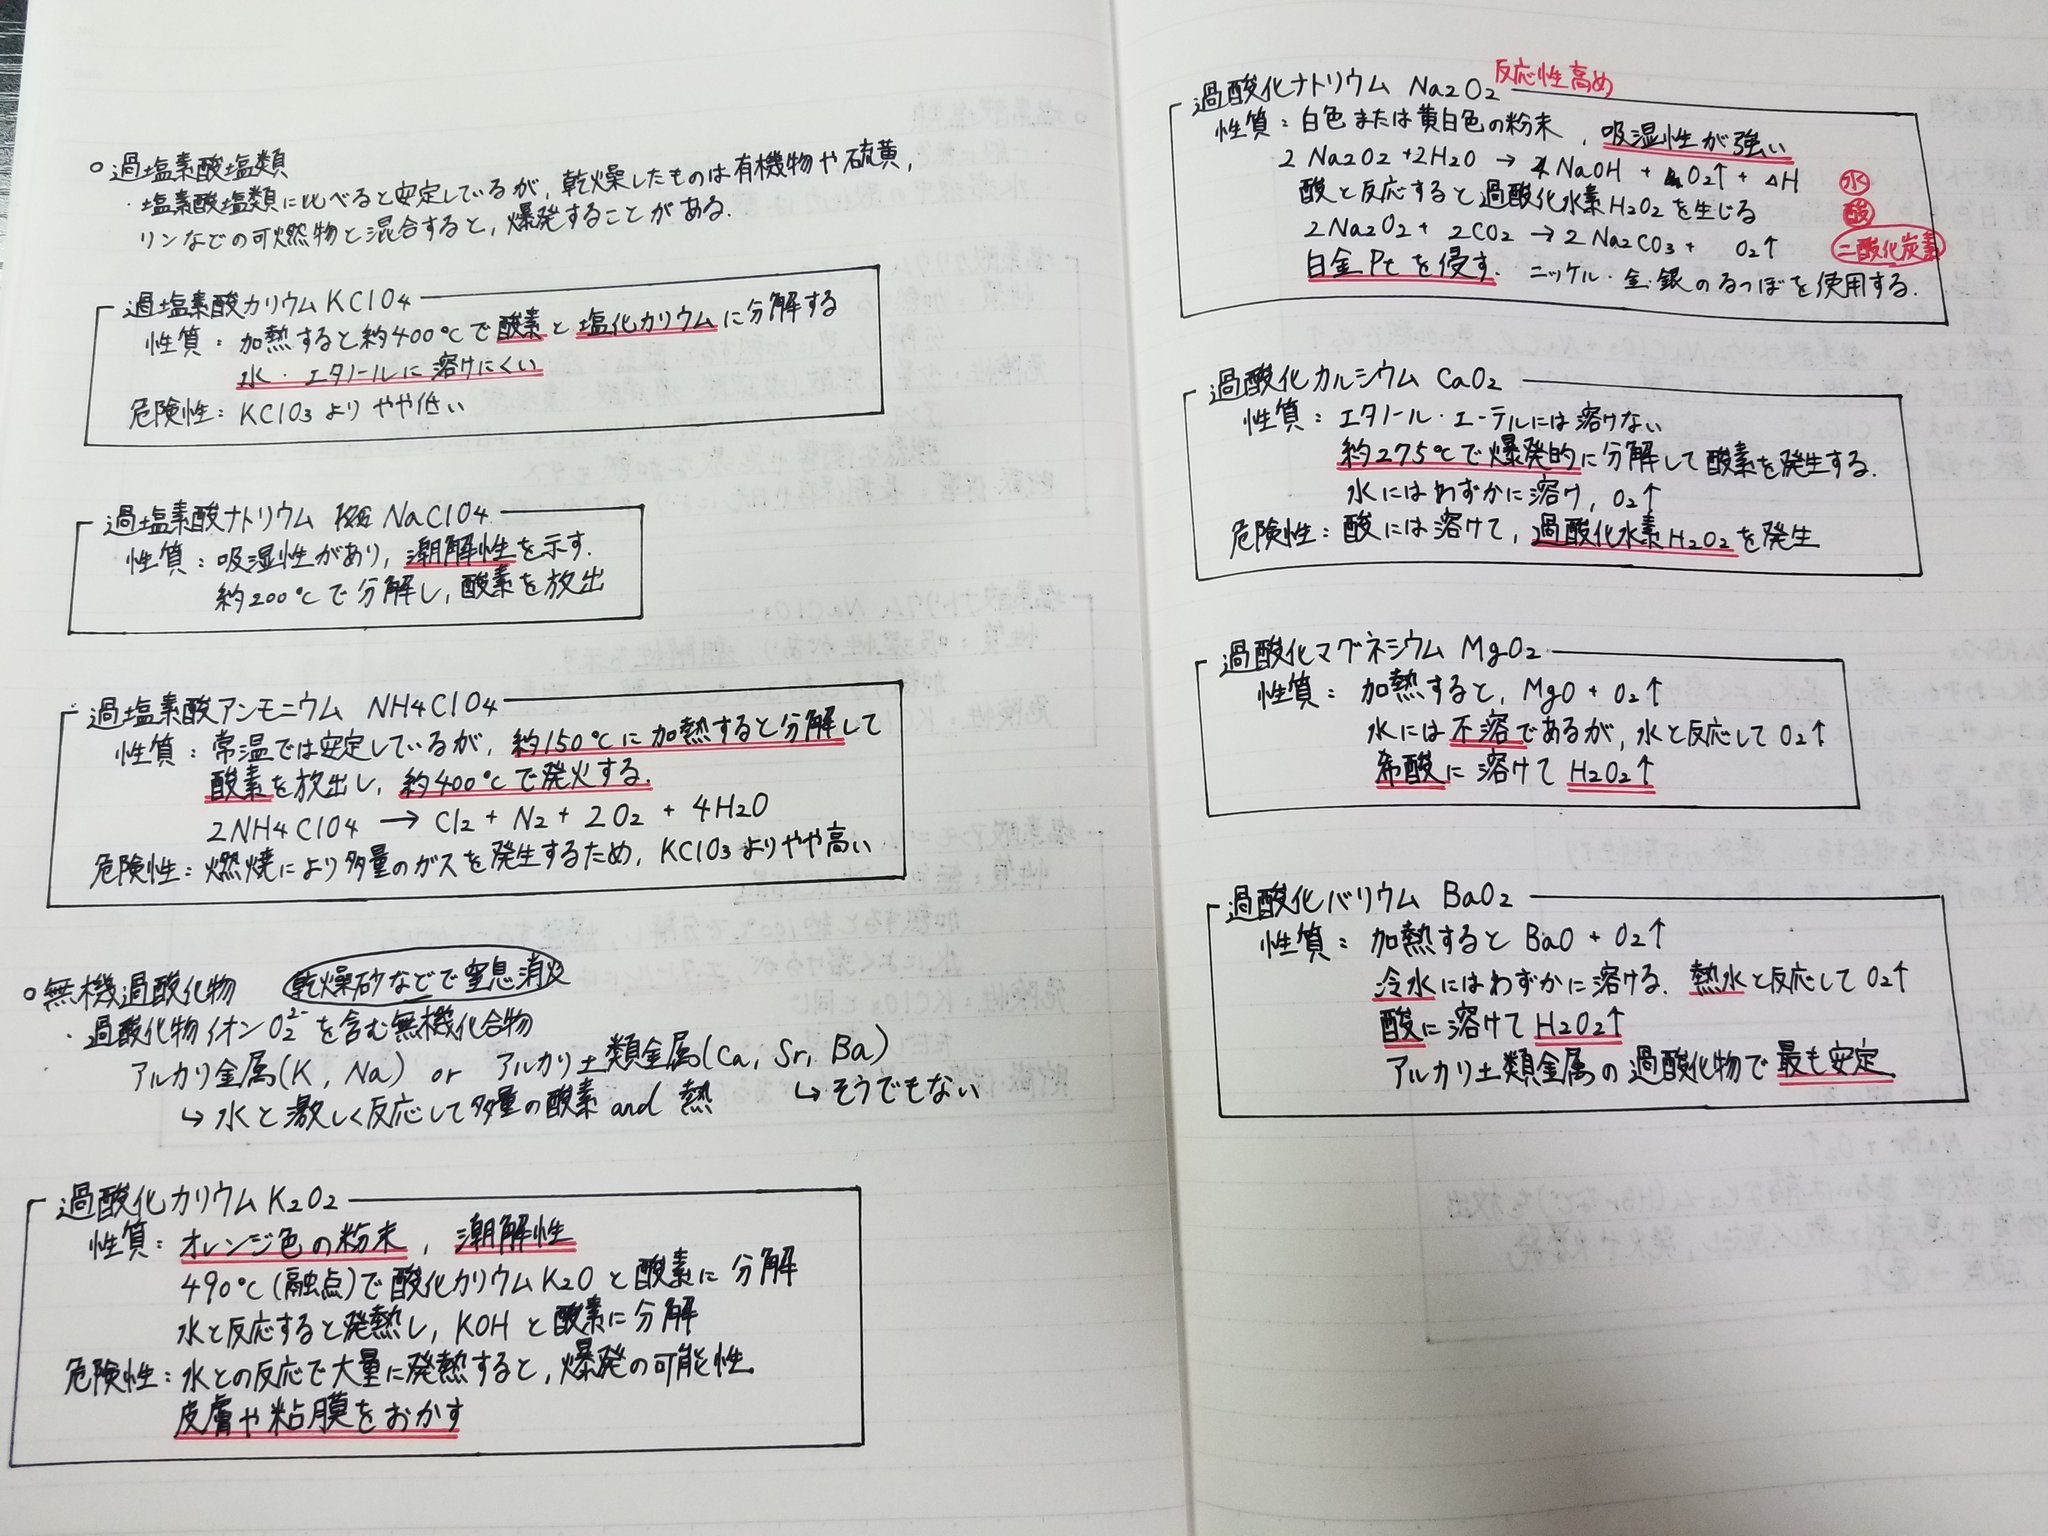 ○過塩素酸塩類
・塩素酸塩類に比べると安定しているが,乾燥したものは有機物や硫黄,
リンなどの可燃物と混合すると,爆発することがある.
過塩素酸カリウム KClO4
性質：加熱すると約400℃で酸素と塩化カリウムに分解する
水・エタノールに溶けにくい
危険性：KClO3よりやや低い
過塩素酸ナトリウム NaClO4
性質：吸湿性があり,潮解性を示す.
約200℃で分解し,酸素を放出
過塩素酸アンモニウム NH4ClO4
性質：常温では安定しているが,約150℃に加熱すると分解して
酸素を放出し,約400℃で発火する.
2NH4ClO4 → Cl2 + N2 + 2O2 + 4H2O
危険性：燃焼により多量のガスを発生するため,KClO3よりやや高い
○無機過酸化物 乾燥砂などで窒息消火
・過酸化物イオンO2²⁻を含む無機化合物
アルカリ金属(K, Na) or アルカリ土類金属(Ca, Sr, Ba)
↳水と激しく反応して多量の酸素 and 熱 ↳そうでもない
過酸化カリウム K2O2
性質：オレンジ色の粉末,潮解性
490℃(融点)で酸化カリウムK2Oと酸素に分解
水と反応すると発熱し,KOHと酸素に分解
危険性：水との反応で大量に発熱すると,爆発の可能性.
皮膚や粘膜をおかす
過酸化ナトリウム Na2O2 反応性高め
性質：白色または黄白色の粉末,吸湿性が強い
2Na2O2+2H2O → 4NaOH + O2↑ + ΔH 水
酸と反応すると過酸化水素H2O2を生じる 酸
2Na2O2 + 2CO2 → 2Na2CO3 + O2↑ 二酸化炭素
白金Ptを侵す. ニッケル・金・銀のるつぼを使用する.
過酸化カルシウム CaO2
性質：エタノール・エーテルには溶けない
約275℃で爆発的に分解して酸素を発生する.
水にはわずかに溶け, O2↑
危険性：酸には溶けて,過酸化水素H2O2を発生
過酸化マグネシウム MgO2
性質：加熱すると, MgO + O2↑
水には不溶であるが,水と反応してO2↑
希酸に溶けてH2O2↑
過酸化バリウム BaO2
性質：加熱するとBaO + O2↑
冷水にはわずかに溶ける.熱水と反応してO2↑
酸に溶けてH2O2↑
アルカリ土類金属の過酸化物で最も安定.